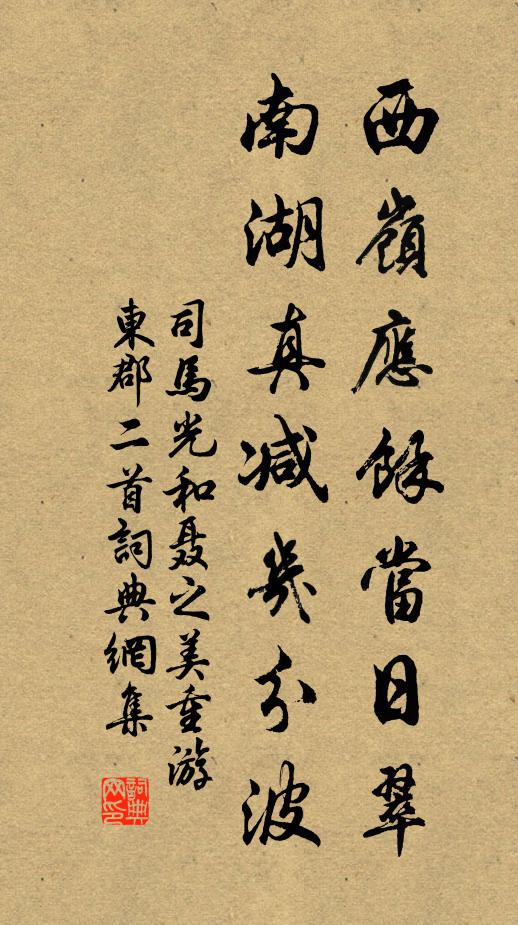 西嶺應餘當日翠
南湖真减幾分波
司馬光和聂之美重游
東郡二首詞典網集
詞典网印